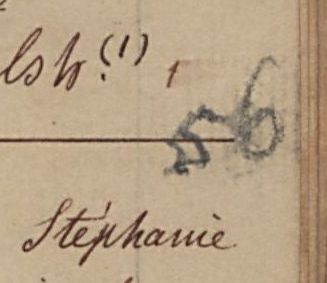 lsh (1)
56
Stéphanie